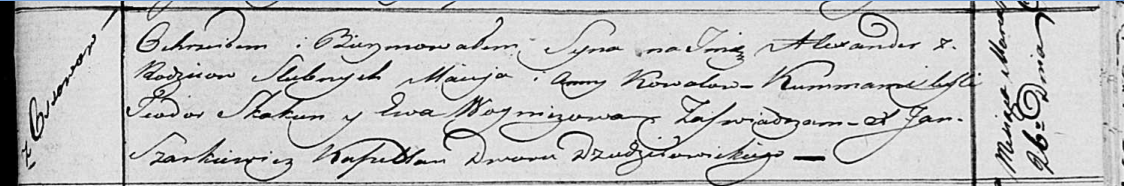 z Osowa
Ochrzciłem i Bierzmowałem Syna na Imie Alexander z
Rodzicow Slubnych Macieja i Anny Kowalow – Kummami byli
Teodor Skakun y Ewa Woznicowa Zaswiadczam – X Jan
Szarkiewicz Kapellan Dworu Dziedziłowickiego —
Miesiąca Marca
26 Dnia